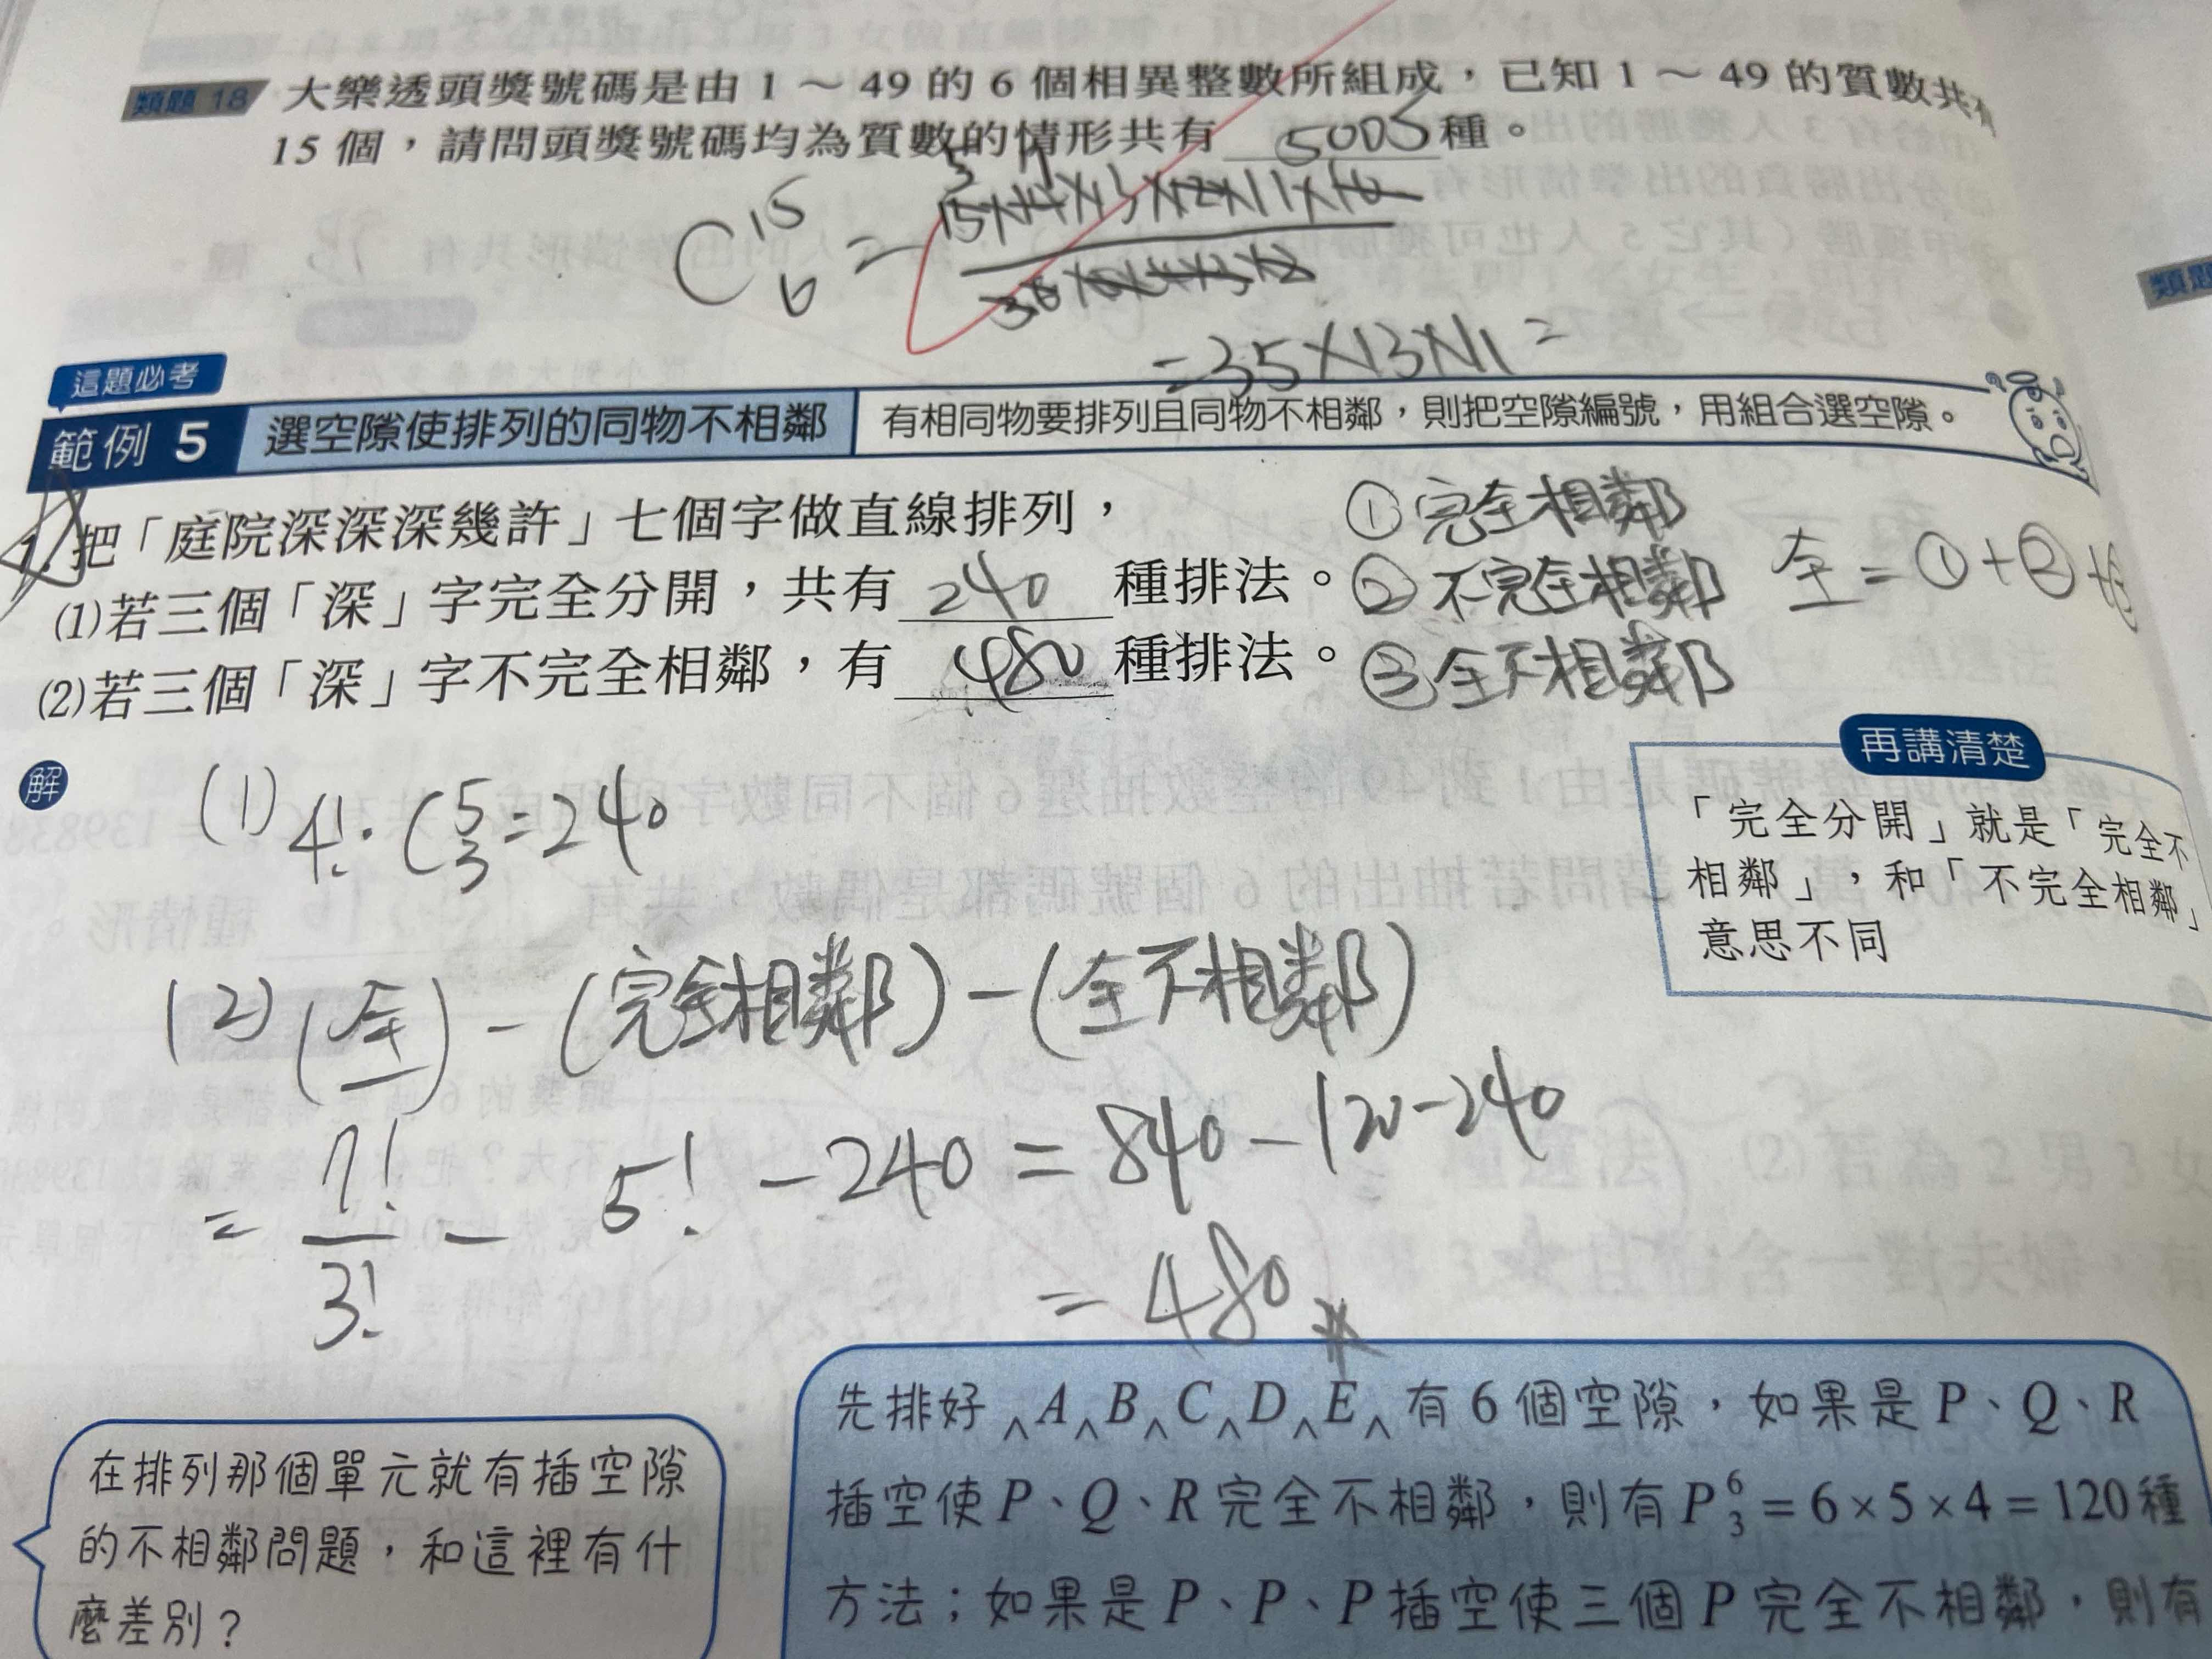 類題 18 大樂透頭獎號碼是由 1 ～ 49 的 6 個相異整數所組成，已知 1 ～ 49 的質數共
15 個，請問頭獎號碼均為質數的情形共有 5005 種。
5 7
C 15 6 = 15×14×13×12×11×10
36×5×4×3×2
=35×13×11=
這題必考
範例 5 選空隙使排列的同物不相鄰 有相同物要排列且同物不相鄰，則把空隙編號，用組合選空隙。
1. 把「庭院深深深幾許」七個字做直線排列，
(1)若三個「深」字完全分開，共有 240 種排法。
(2)若三個「深」字不完全相鄰，有 480 種排法。
① 完全相鄰
② 不完全相鄰
③ 全不相鄰
全 = ① + ② +
解
(1) 4! · C 5 3 = 240
(2) (全) - (完全相鄰) - (全不相鄰)
= 7!/3! - 5! - 240 = 840 - 120 - 240
= 480
再講清楚
「完全分開」就是「完全不
相鄰」，和「不完全相鄰」
意思不同
在排列那個單元就有插空隙
的不相鄰問題，和這裡有什
麼差別？
先排好 ∧A∧B∧C∧D∧E∧ 有 6 個空隙，如果是 P、Q、R
插空使 P、Q、R 完全不相鄰，則有 P 6 3 = 6 × 5 × 4 = 120 種
方法；如果是 P、P、P 插空使三個 P 完全不相鄰，則有